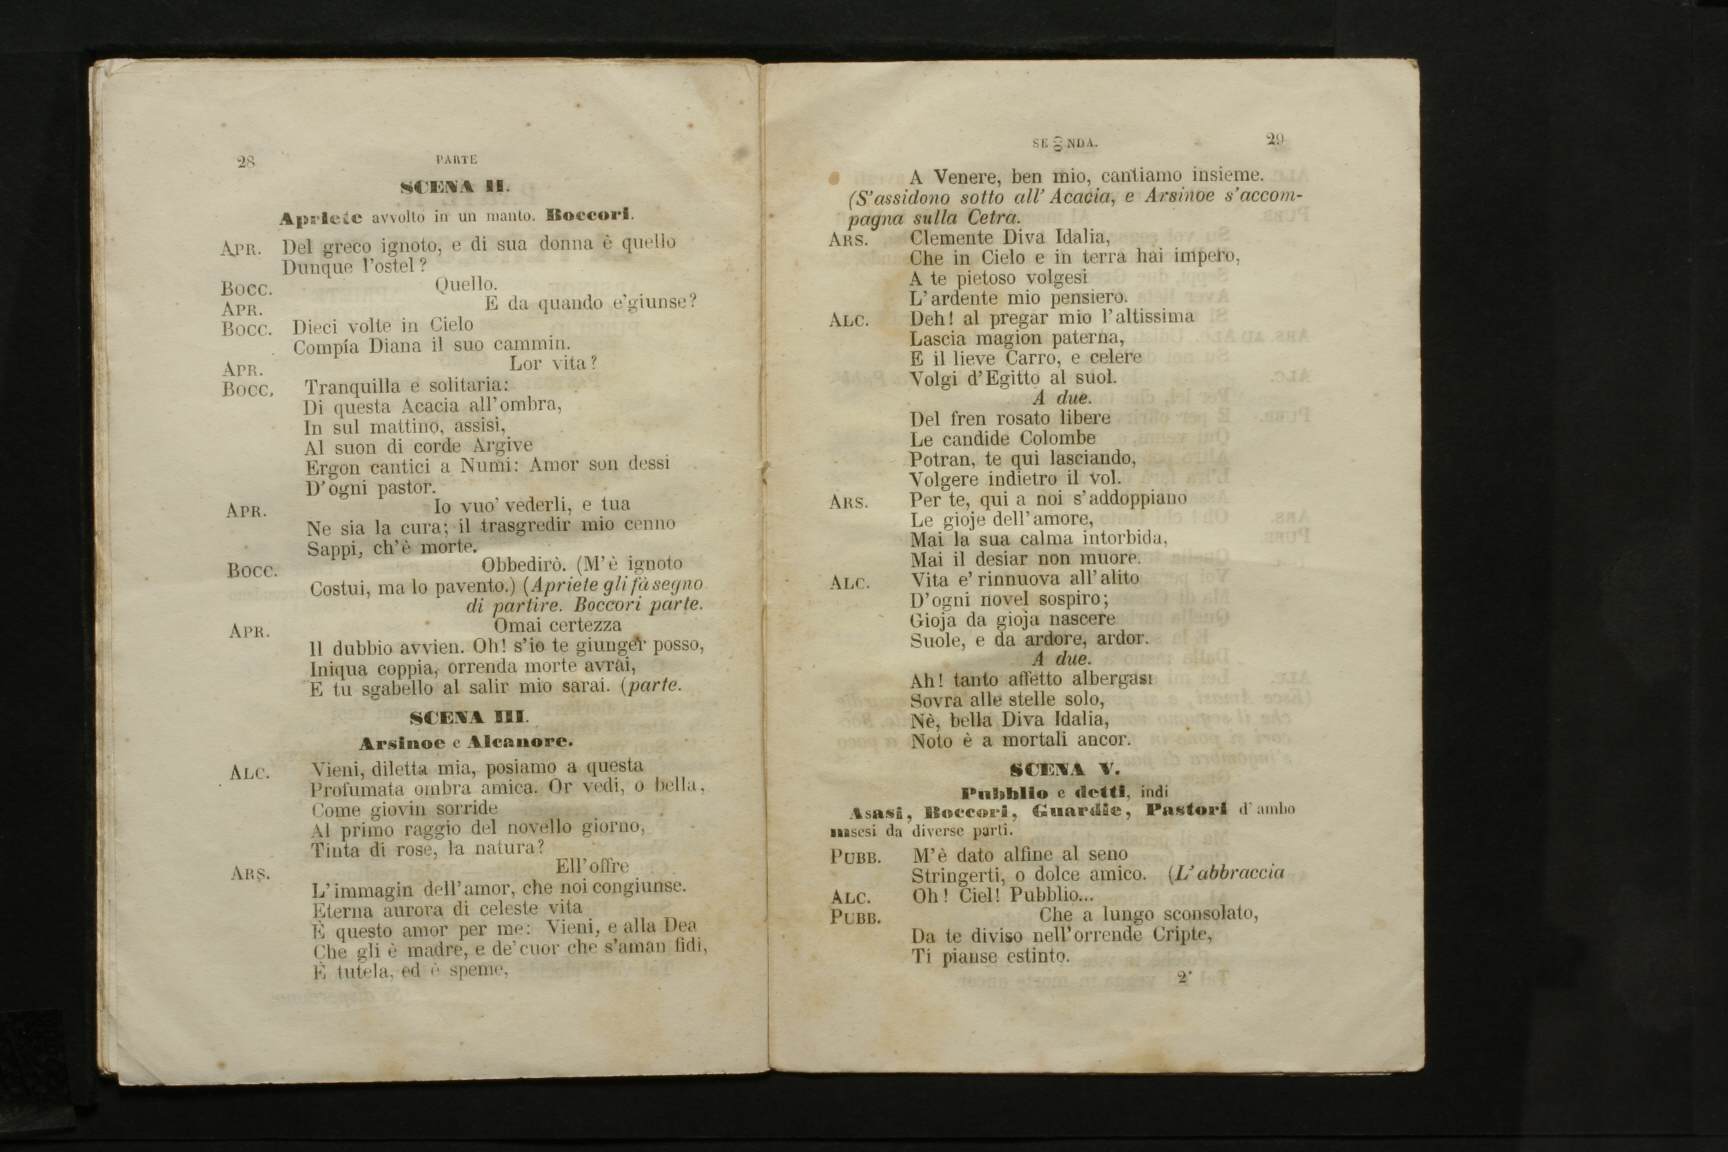 28
PARTE
SCENA II.
Apriete avvolto in un manto. Boccori.
APR. Del greco ignoto, e di sua donna è quello
Dunque l'ostel?
BOCC. Quello.
APR. E da quando e'giunse?
BOCC. Dieci volte in Cielo
Compía Diana il suo cammin.
APR. Lor vita?
BOCC, Tranquilla e solitaria:
Di questa Acacia all'ombra,
In sul mattino, assisi,
Al suon di corde Argive
Ergon cantici a Numi: Amor son dessi
D'ogni pastor.
APR. Io vuo' vederli, e tua
Ne sia la cura; il trasgredir mio cenno
Sappi, ch'è morte.
BOCC. Obbedirò. (M'è ignoto
Costui, ma lo pavento.) (Apriete gli fà segno
di partire. Boccori parte.
APR. Omai certezza
Il dubbio avvien. Oh! s'io te giunger posso,
Iniqua coppia, orrenda morte avrai,
E tu sgabello al salir mio sarai. (parte.
SCENA III.
Arsinoe e Alcanore.
ALC. Vieni, diletta mia, posiamo a questa
Profumata ombra amica. Or vedi, o bella,
Come giovin sorride
Al primo raggio del novello giorno,
Tinta di rose, la natura?
ARS. Ell'offre
L'immagin dell'amor, che noi congiunse.
Eterna aurora di celeste vita
È questo amor per me: Vieni, e alla Dea
Che gli è madre, e de'cuor che s'aman fidi,
È tutela, ed è speme,
SECONDA.
29
A Venere, ben mio, cantiamo insieme.
(S'assidono sotto all' Acacia, e Arsinoe s'accom-
pagna sulla Cetra.
ARS. Clemente Diva Idalia,
Che in Cielo e in terra hai impero,
A te pietoso volgesi
L'ardente mio pensiero.
ALC. Deh! al pregar mio l'altissima
Lascia magion paterna,
E il lieve Carro, e celere
Volgi d'Egitto al suol.
A due.
Del fren rosato libere
Le candide Colombe
Potran, te qui lasciando,
Volgere indietro il vol.
ARS. Per te, qui a noi s'addoppiano
Le gioje dell'amore,
Mai la sua calma intorbida,
Mai il desiar non muore.
ALC. Vita e' rinnuova all'alito
D'ogni novel sospiro;
Gioja da gioja nascere
Suole, e da ardore, ardor.
A due.
Ah! tanto affetto albergasi
Sovra alle stelle solo,
Nè, bella Diva Idalia,
Noto è a mortali ancor.
SCENA V.
Pubblio e detti, indi
Asasi, Boccori, Guardie, Pastori d'ambo
i sesi da diverse parti.
PUBB. M'è dato alfine al seno
Stringerti, o dolce amico. (L'abbraccia
ALC. Oh! Ciel! Pubblio...
PUBB. Che a lungo sconsolato,
Da te diviso nell'orrende Cripte,
Ti pianse estinto.
2*